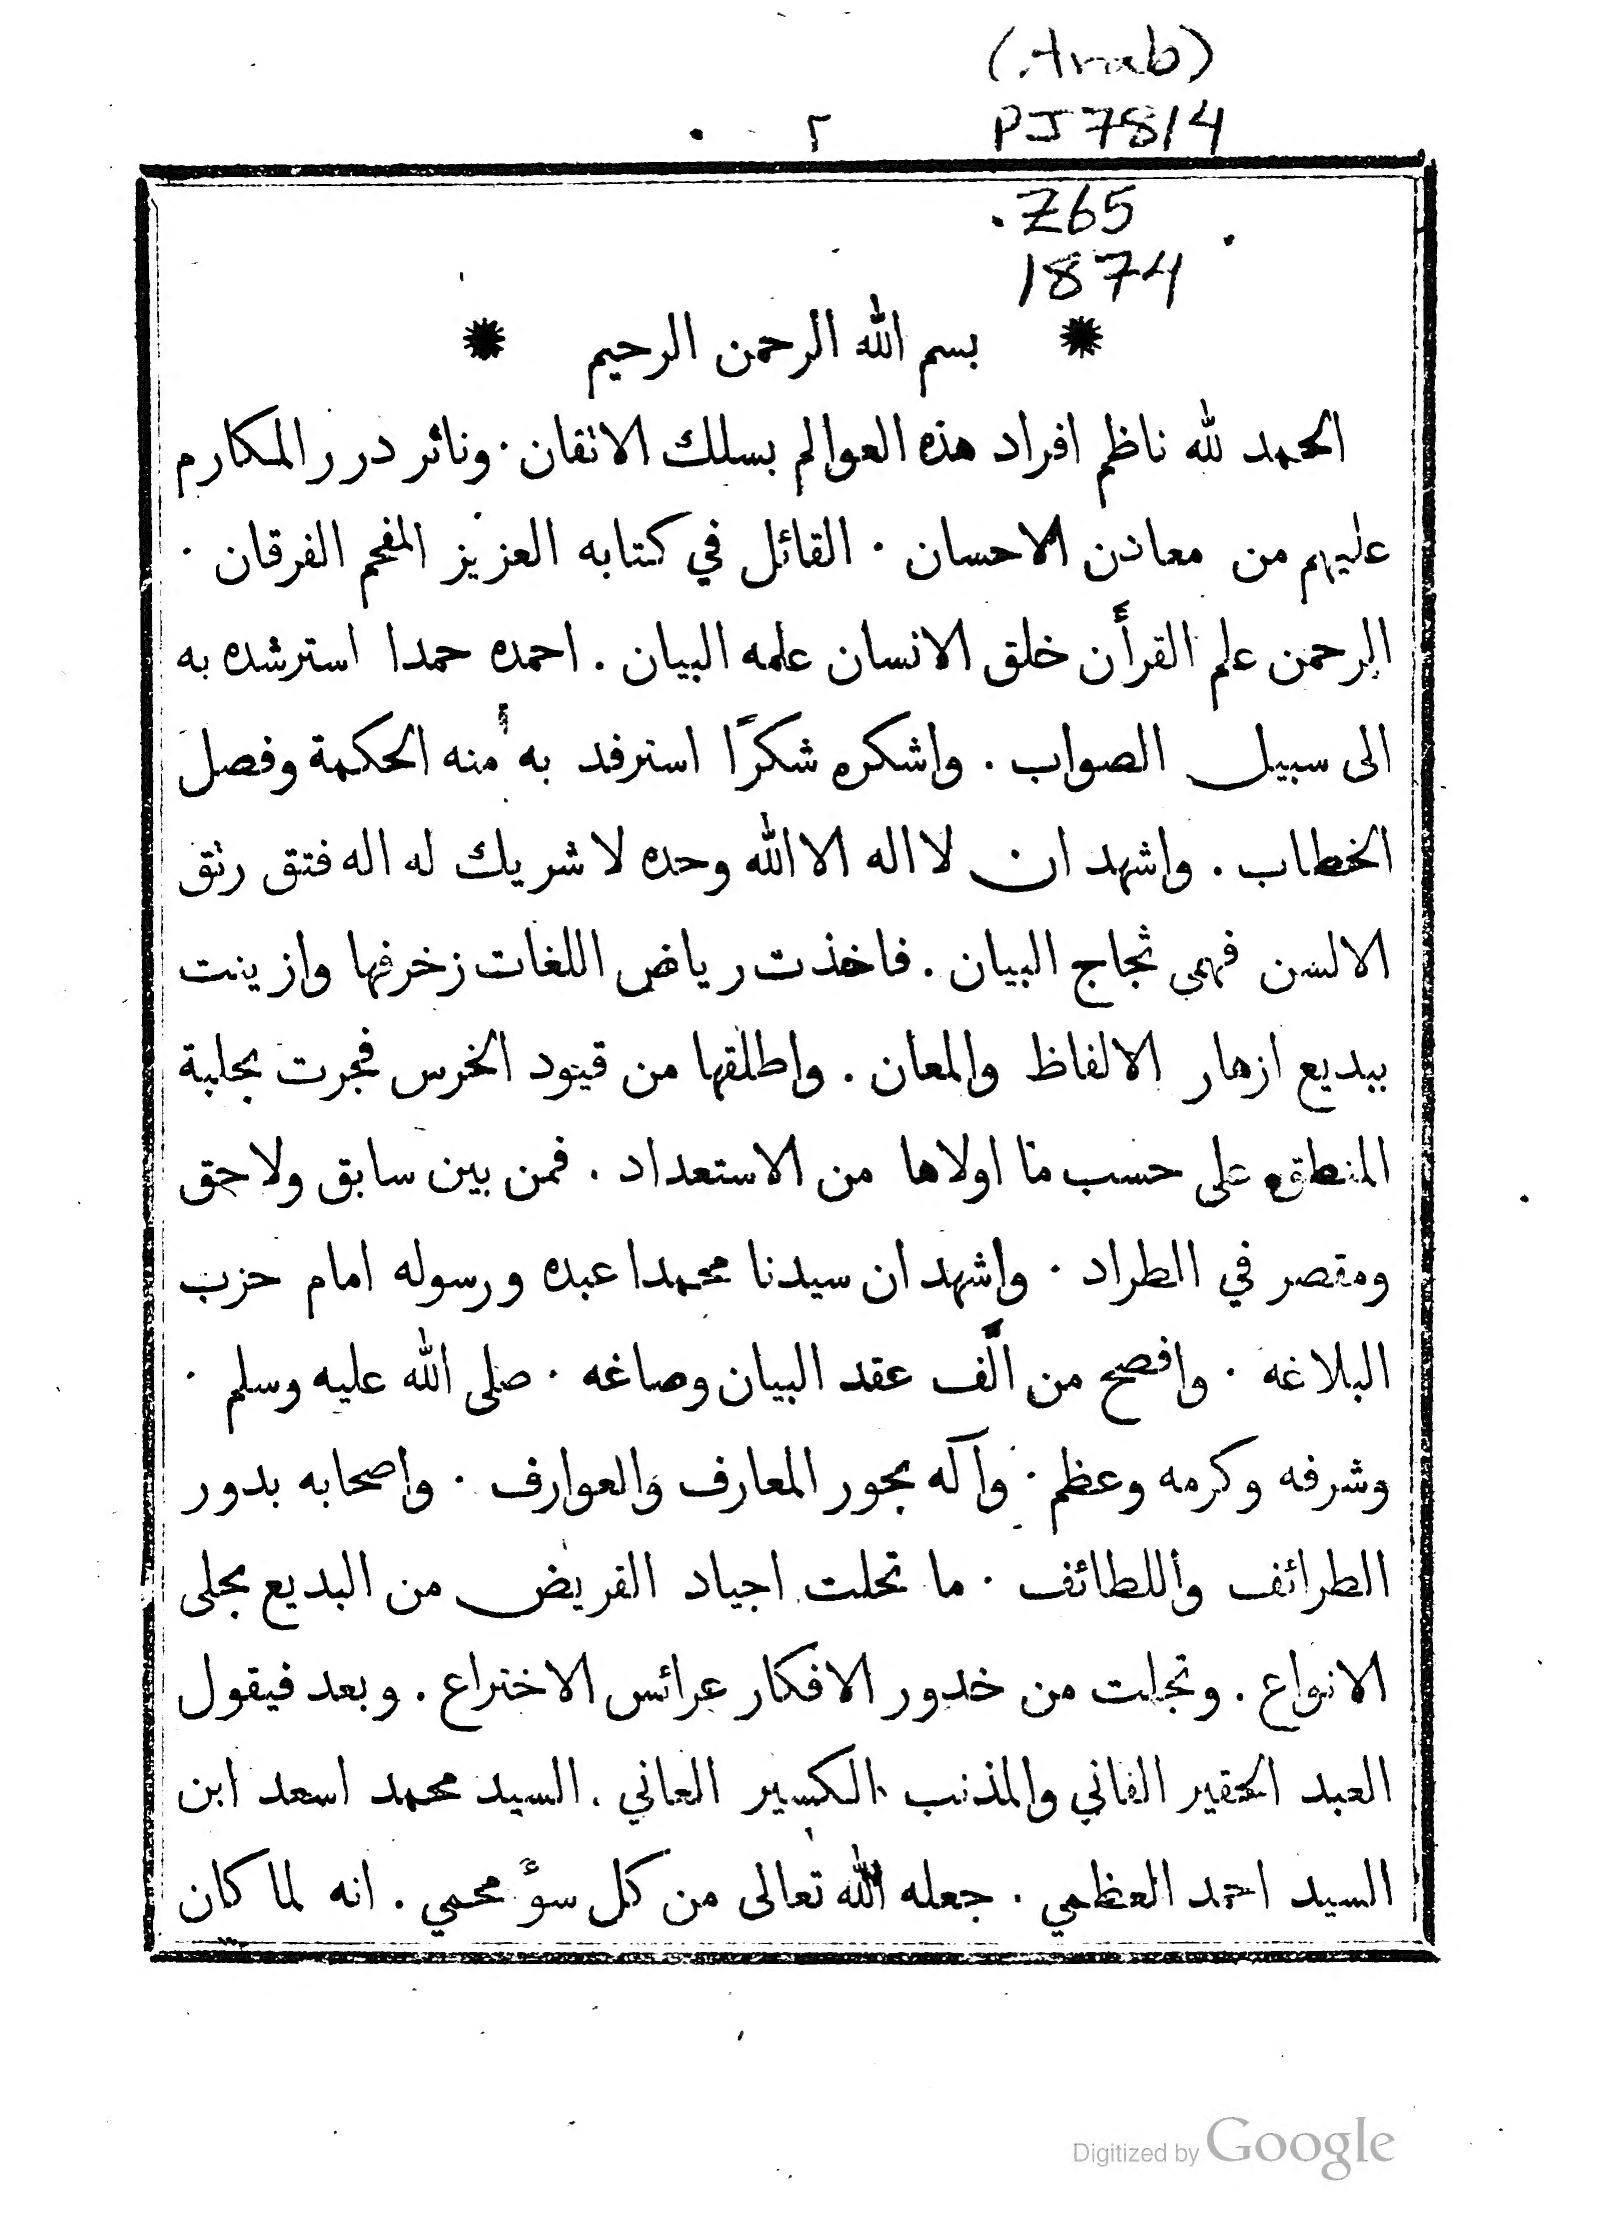 (Arab)
٢ PJ7814
.Z65
1874
✹ بسم الله الرحمن الرحيم ✹
الحمد لله ناظم افراد هذه العوالم بسلك الاتقان · وناثر درر المكارم
عليهم من معادن الاحسان · القائل في كتابه العزيز المفحم الفرقان ·
الرحمن علم القرأن خلق الانسان علمه البيان . احمده حمدا استرشده به
الى سبيل الصواب . واشكره شكرًا استرفد به منه الحكمة وفصل
الخطاب . واشهد ان لا اله الا الله وحده لا شريك له اله فتق رتق
الالسن فهمى ثجاج البيان . فاخذت رياض اللغات زخرفها وازينت
ببديع ازهار الالفاظ والمعان . واطلقها من قيود الخرس فجرت بحلبة
المنطق على حسب ما اولاها من الاستعداد . فمن بين سابق ولاحق
ومقصر في الطراد · واشهد ان سيدنا محمدا عبده ورسوله امام حزب
البلاغه · وافصح من الَّف عقد البيان وصاغه · صلى الله عليه وسلم ·
وشرفه وكرمه وعظم · وآله بحور المعارف والعوارف · واصحابه بدور
الطرائف واللطائف · ما تحلت اجياد القريض من البديع بحلى
الانواع . وتجلت من خدور الافكار عرائس الاختراع . وبعد فيقول
العبد الحقير الفاني والمذنب الكسير العاني . السيد محمد اسعد ابن
السيد احمد العظمي . جعله الله تعالى من كل سوءٍ محمي . انه لما كان
Digitized by Google